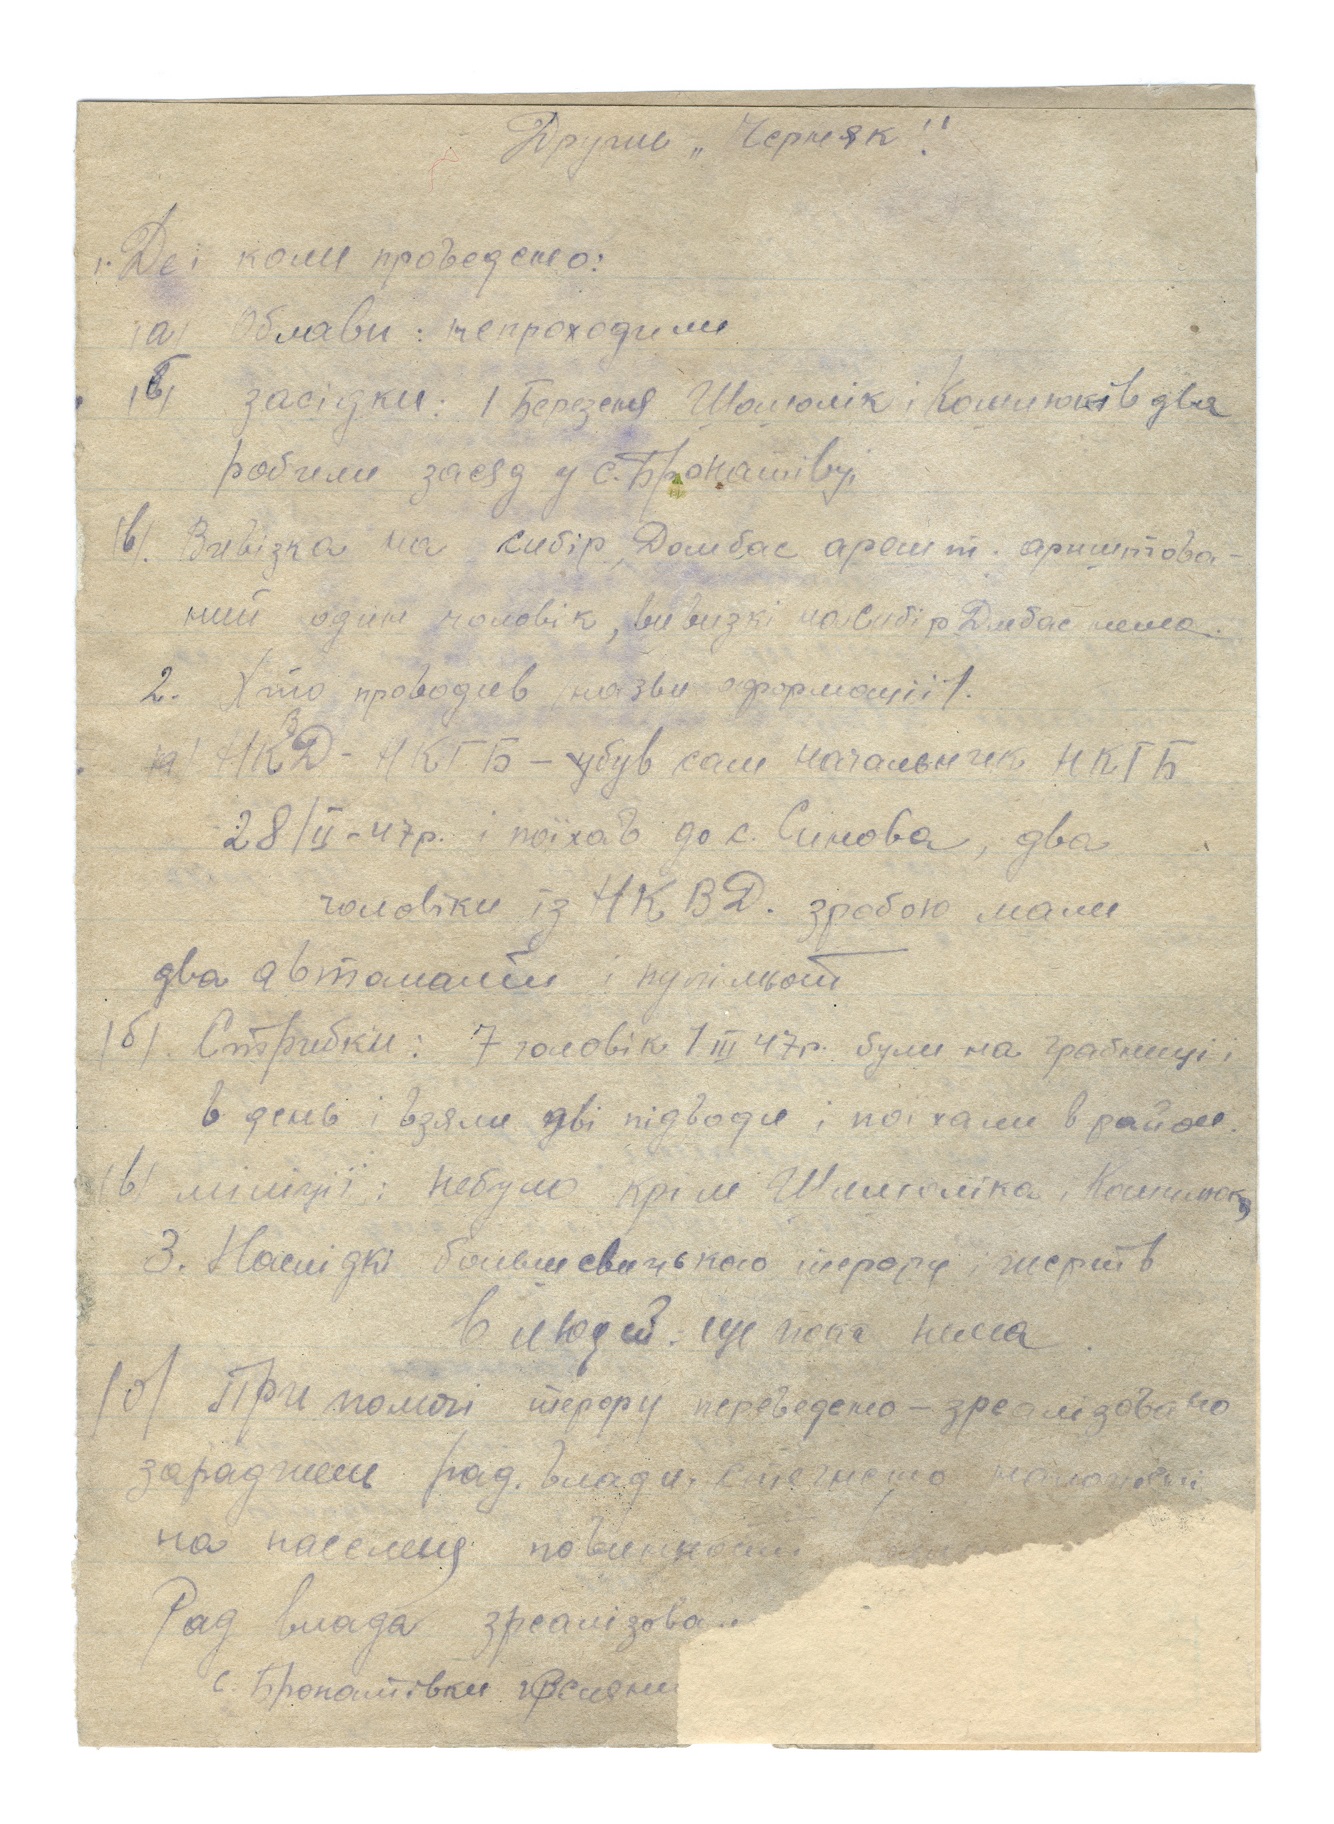 Друже „Черняк"!
1. Де і коли проведено:
/а/ Облави: непроходили
/б/ засідки: 1 Березня Шомюлік і Комилюків два
робили засяд у с. Бронатівці
/в/. Вивізка на сибір, Домбас арешт. ариштова-
ний один чоловік, вивизкі на Сибір Дмбас нема.
2. Хто проводив назви формації/.
/а/ НКВД - НКГБ – убув сам начальник НКГБ
28/ІІ-47р. і поїхав до с. Синова, два
чоловіки із НКВД. зробою мали
два автомати і пулімьот
/б/. Стрибки: 7 чоловік 1 ІІІ 47р. були на грабниці і
в день і взяли дві підводи і поїхали в район.
/в/ міліції: небуло крім Шомюліка і Комилюка
3. Наслідкі большевицького терору і жертв
в людей: ще пока нема.
/б/ При помочі терору переведено – зреалізовано
зараджень рад. влади, стягнено
на населеня повинности
Рад влада зреалізова
с. Бронатівки